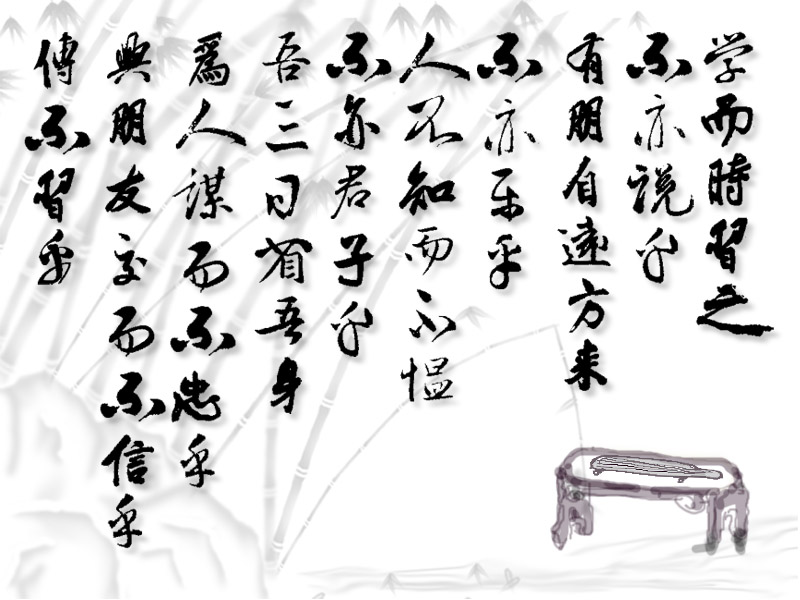 学而時習之
不亦説乎
有朋自遠方来
不亦乐乎
人不知而不愠
不亦君子乎
吾三日省吾身
爲人謀而不忠乎
與朋友交而不信乎
傳不習乎